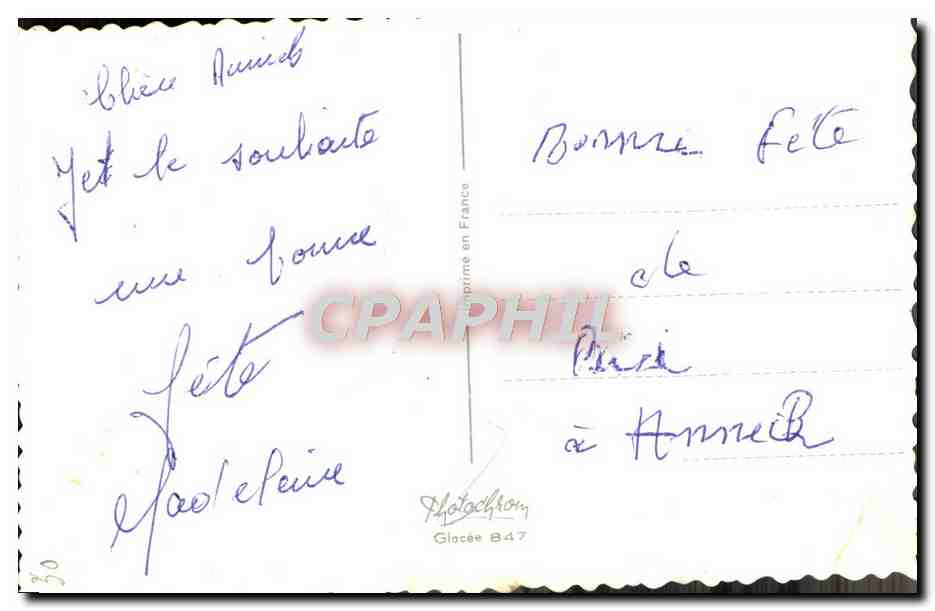 Chère Annick
Je te souhaite
une bonne
fête
Madeleine
30
Imprimé en France
CPAPHIL
Photochrom
Glacée 847
Bonne Fête
de
à Annick